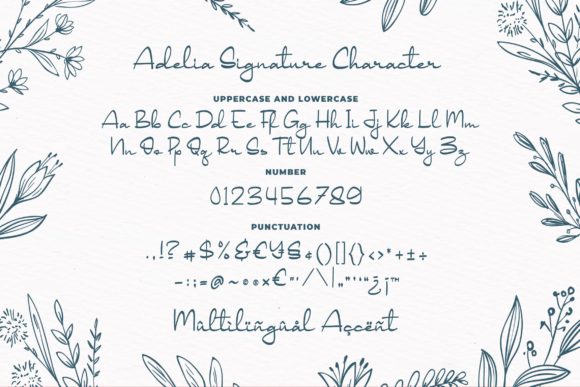 Adelia Signature Character
UPPERCASE AND LOWERCASE
Aa Bb Cc Dd Ee Ff Gg Hh Ii Jj Kk Ll Mm
Nn Oo Pp Qq Rr Ss Tt Uu Vv Ww Xx Yy Zz
NUMBER
0123456789
PUNCTUATION
.,!? #$%&€¥$¢()[]{}<>*+±÷
-:;=@~©®×€"'/\|„"''"¿¡™
Mùltilïñgúâl Açcëñt